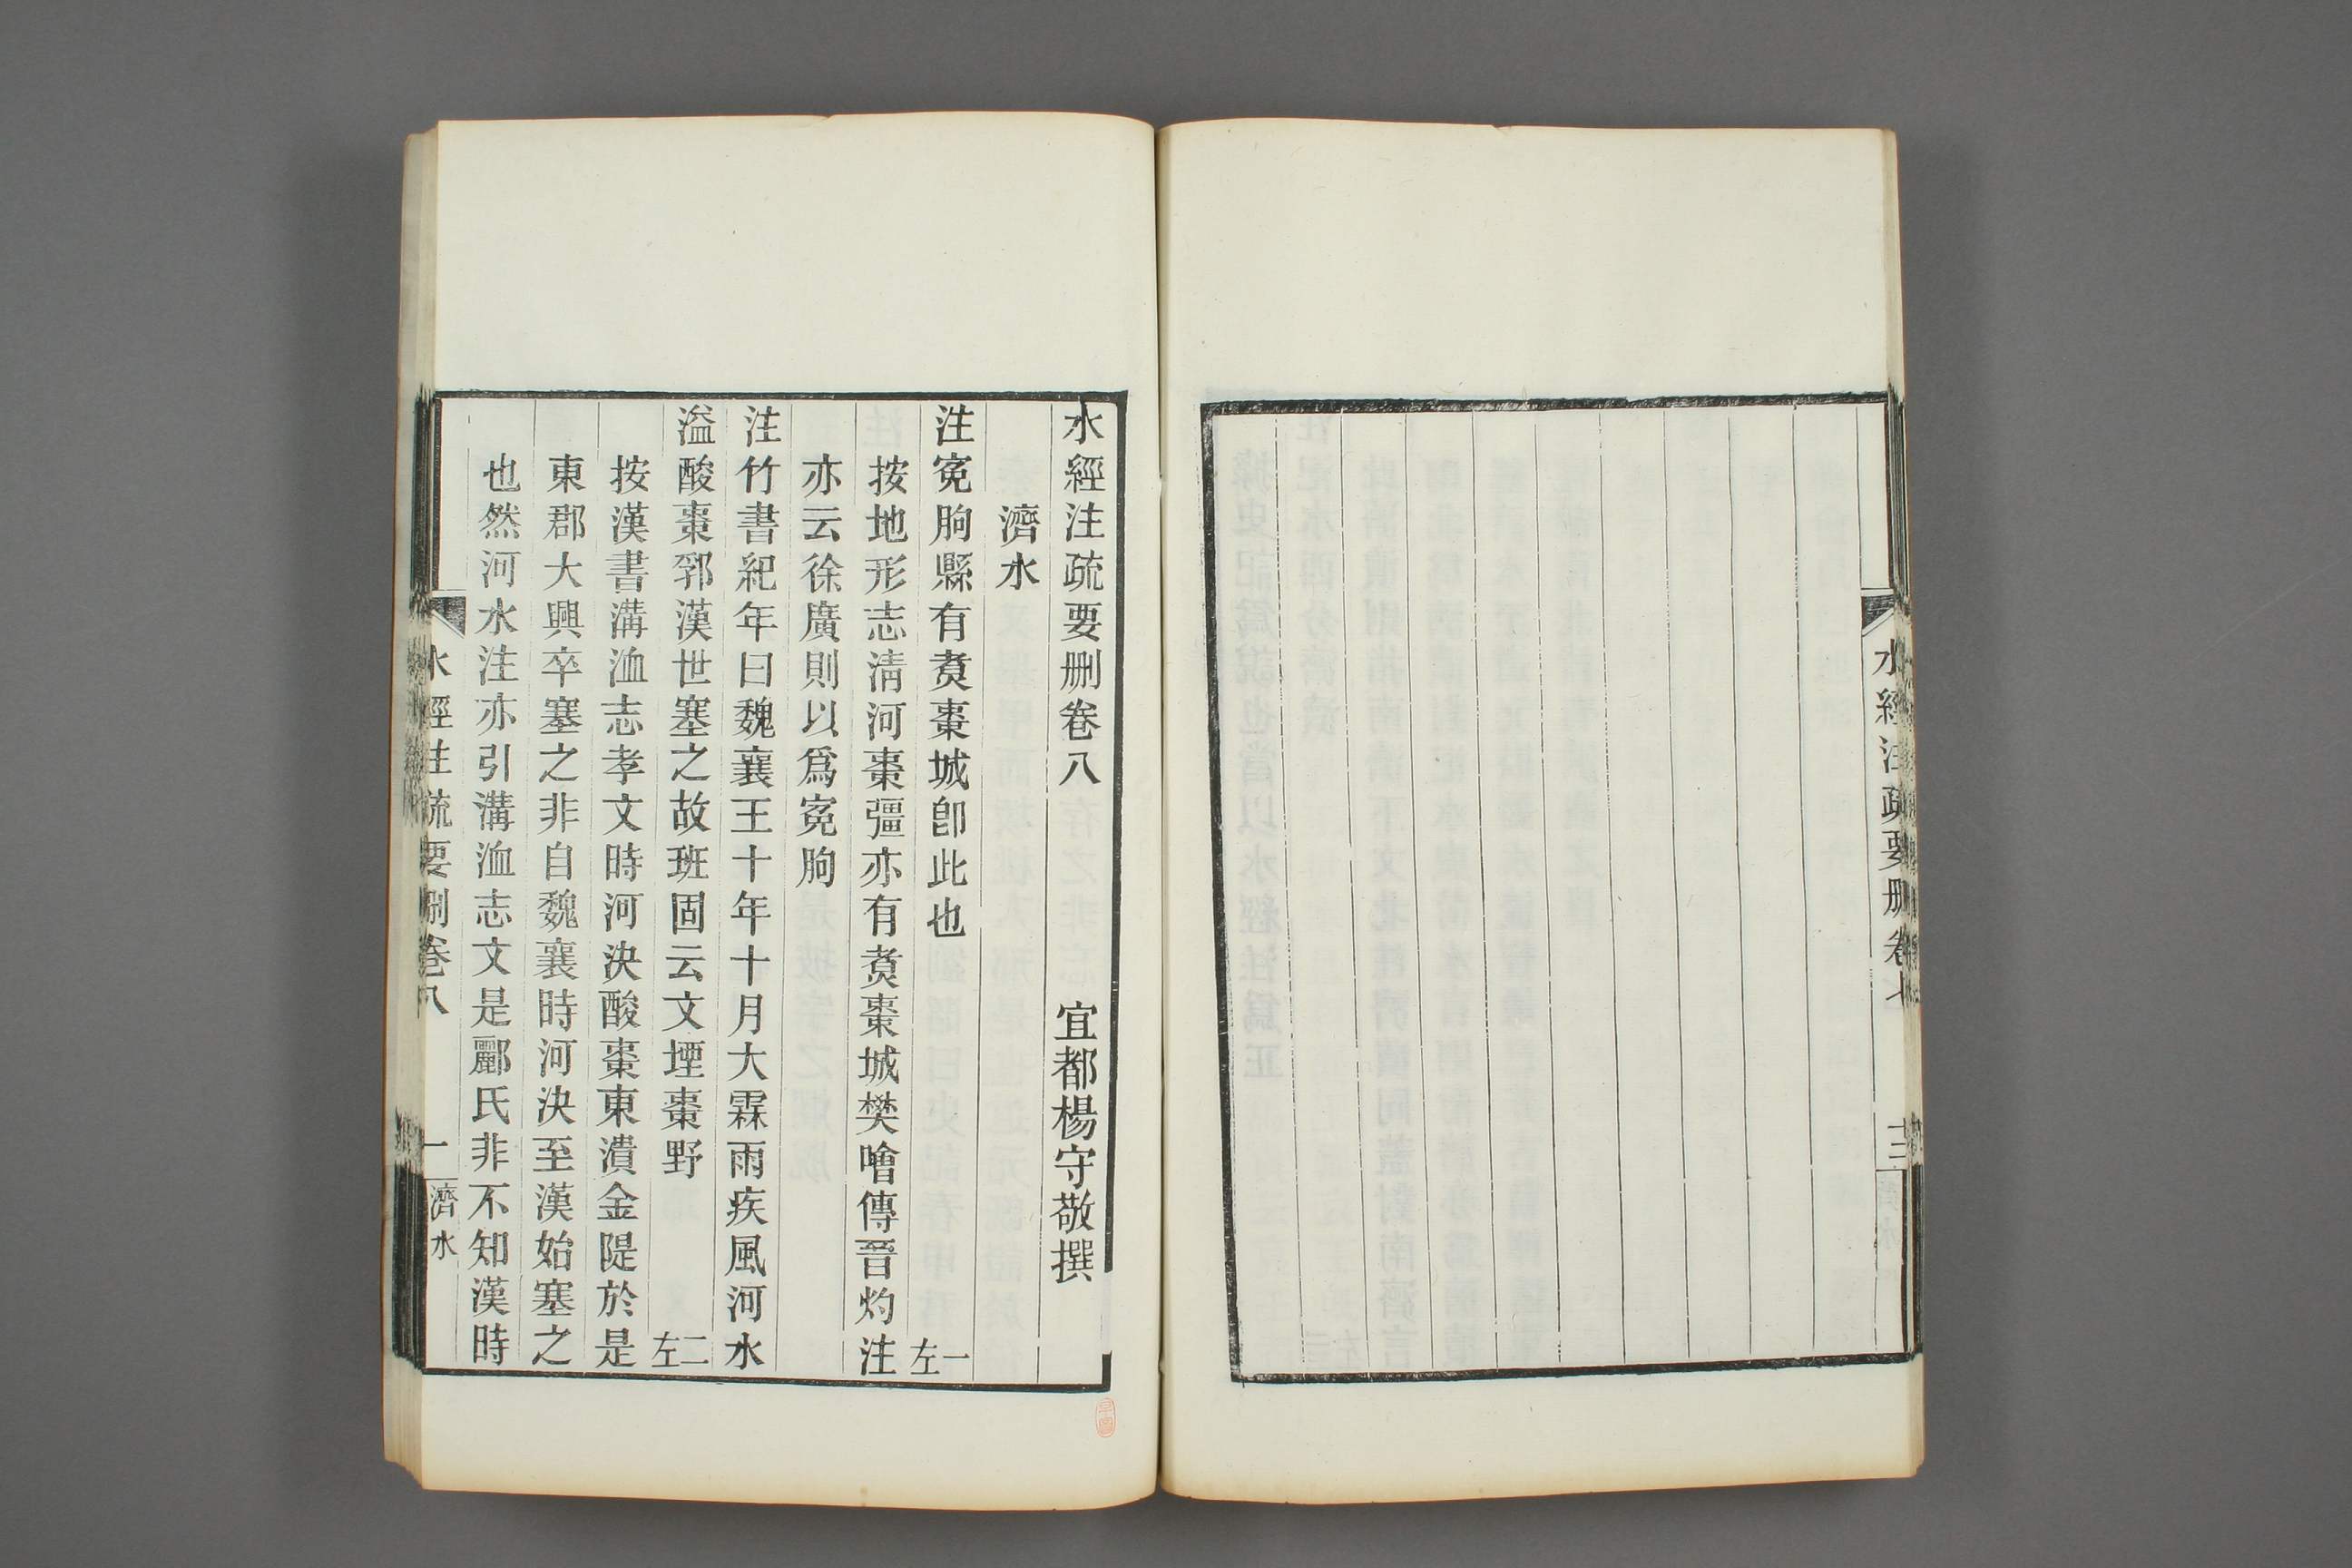 水經注疏要删卷七
十三
水經注疏要删卷八
宜都楊守敬撰
濟水
注寃朐縣有煑棗城卽此也 一左
按地形志清河棗彊亦有煑棗城樊噲傳晋灼注
亦云徐廣則以爲寃朐
注竹書紀年曰魏襄王十年十月大霖雨疾風河水
溢酸棗郛漢世塞之故班固云文堙棗野 二左
按漢書溝洫志孝文時河決酸棗東潰金隄於是
東郡大興卒塞之非自魏襄時河決至漢始塞之
也然河水注亦引溝洫志文是酈氏非不知漢時
水經注疏要删卷八
一
濟水